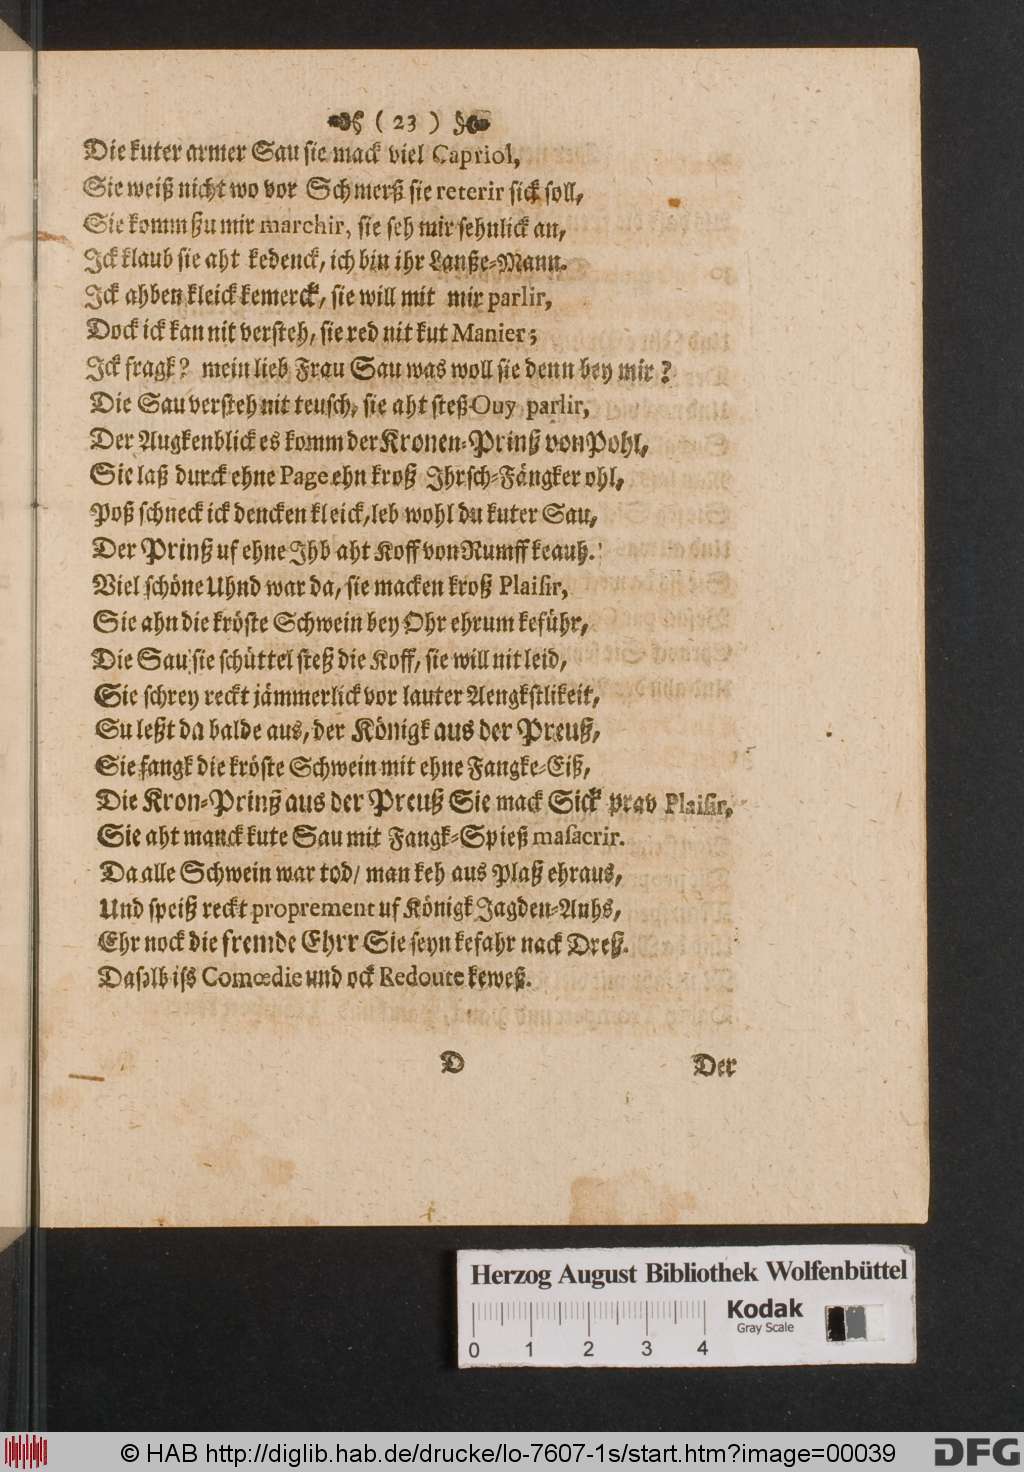 ( 23 )
Die kuter armer Sau sie mack viel Capriol,
Sie weiß nicht wo vor Schmerß sie reterir sick soll,
Sie komm ßu mir marchir, sie seh mir sehnlick an,
Ick klaub sie aht kedenck, ich bin ihr Lanße-Mann.
Ick ahben kleick kemerck, sie will mit mir parlir,
Dock ick kan nit versteh, sie red nit kut Manier;
Ick fragk? mein lieb Frau Sau was woll sie denn bey mir?
Die Sau versteh nit teusch, sie aht steß Ouy parlir,
Der Augkenblick es komm der Kronen-Prinß von Pohl,
Sie laß durck ehne Page ehn kroß Ihrsch-Fängker ohl,
Poß schneck ick dencken kleick, leb wohl du kuter Sau,
Der Prinß uf ehne Ihb aht Koff von Rumff keauh.
Viel schöne Uhnd war da, sie macken kroß Plaisir,
Sie ahn die kröste Schwein bey Ohr ehrum keführ,
Die Sau sie schüttel steß die Koff, sie will nit leid,
Sie schrey reckt jämmerlick vor lauter Aengkstlikeit,
Su leßt da balde aus, der Königk aus der Preuß,
Sie fangk die kröste Schwein mit ehne Fangke-Eiß,
Die Kron-Prinß aus der Preuß Sie mack Sick prav Plaisir,
Sie aht manck kute Sau mit Fangk-Spieß masacrir.
Da alle Schwein war tod/ man keh aus Plaß ehraus,
Und speiß reckt proprement uf Königk Jagden-Auhs,
Ehr nock die fremde Ehrr Sie seyn kefahr nack Dreß.
Daselb iss Comœdie und ock Redoute keweß.
D Der
Herzog August Bibliothek Wolfenbüttel
Kodak
Gray Scale
0 1 2 3 4
© HAB http://diglib.hab.de/drucke/lo-7607-1s/start.htm?image=00039
DFG